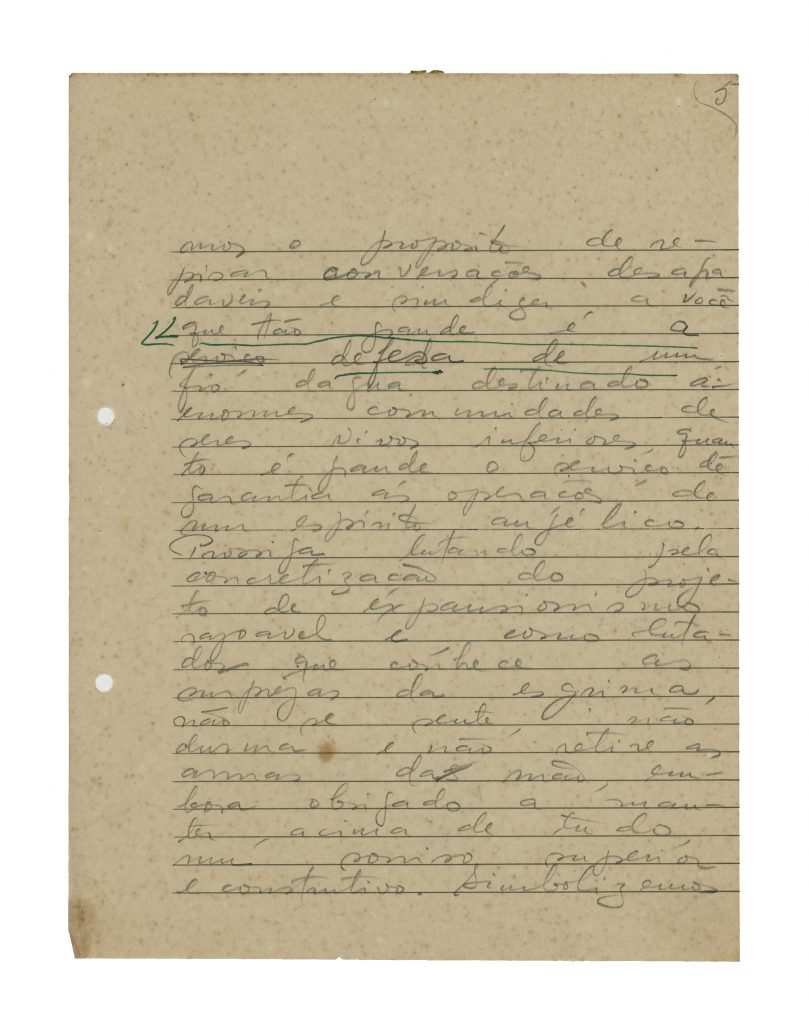 5
mos o proposito de re-
pisar conversações desagra
daveis e sim dizer a você
que tão grande é a
serviço defesa de um
fio dagua destinado á
enormes comunidades de
seres vivos inferiores, quan
to é grande o serviço de
garantia ás operações de
um espirito angélico.
Prossiga lutando pela
concretização do proje-
to de expansionismo
razoavel e como luta-
dor que conhece as
surprezas da esgrima,
não se sente, não
durma e não retire as
armas da mão, em-
bora obrigado a man-
ter, acima de tudo,
um sorriso superior
e construtivo. Simbolizemos